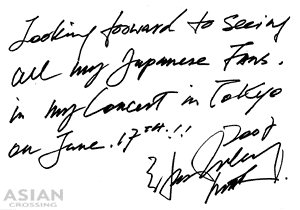 Looking forward to seeing
all my Japanese Fans.
in my Concert in Tokyo
on June. 17TH.!!
2007
ASIAN
CROSSING